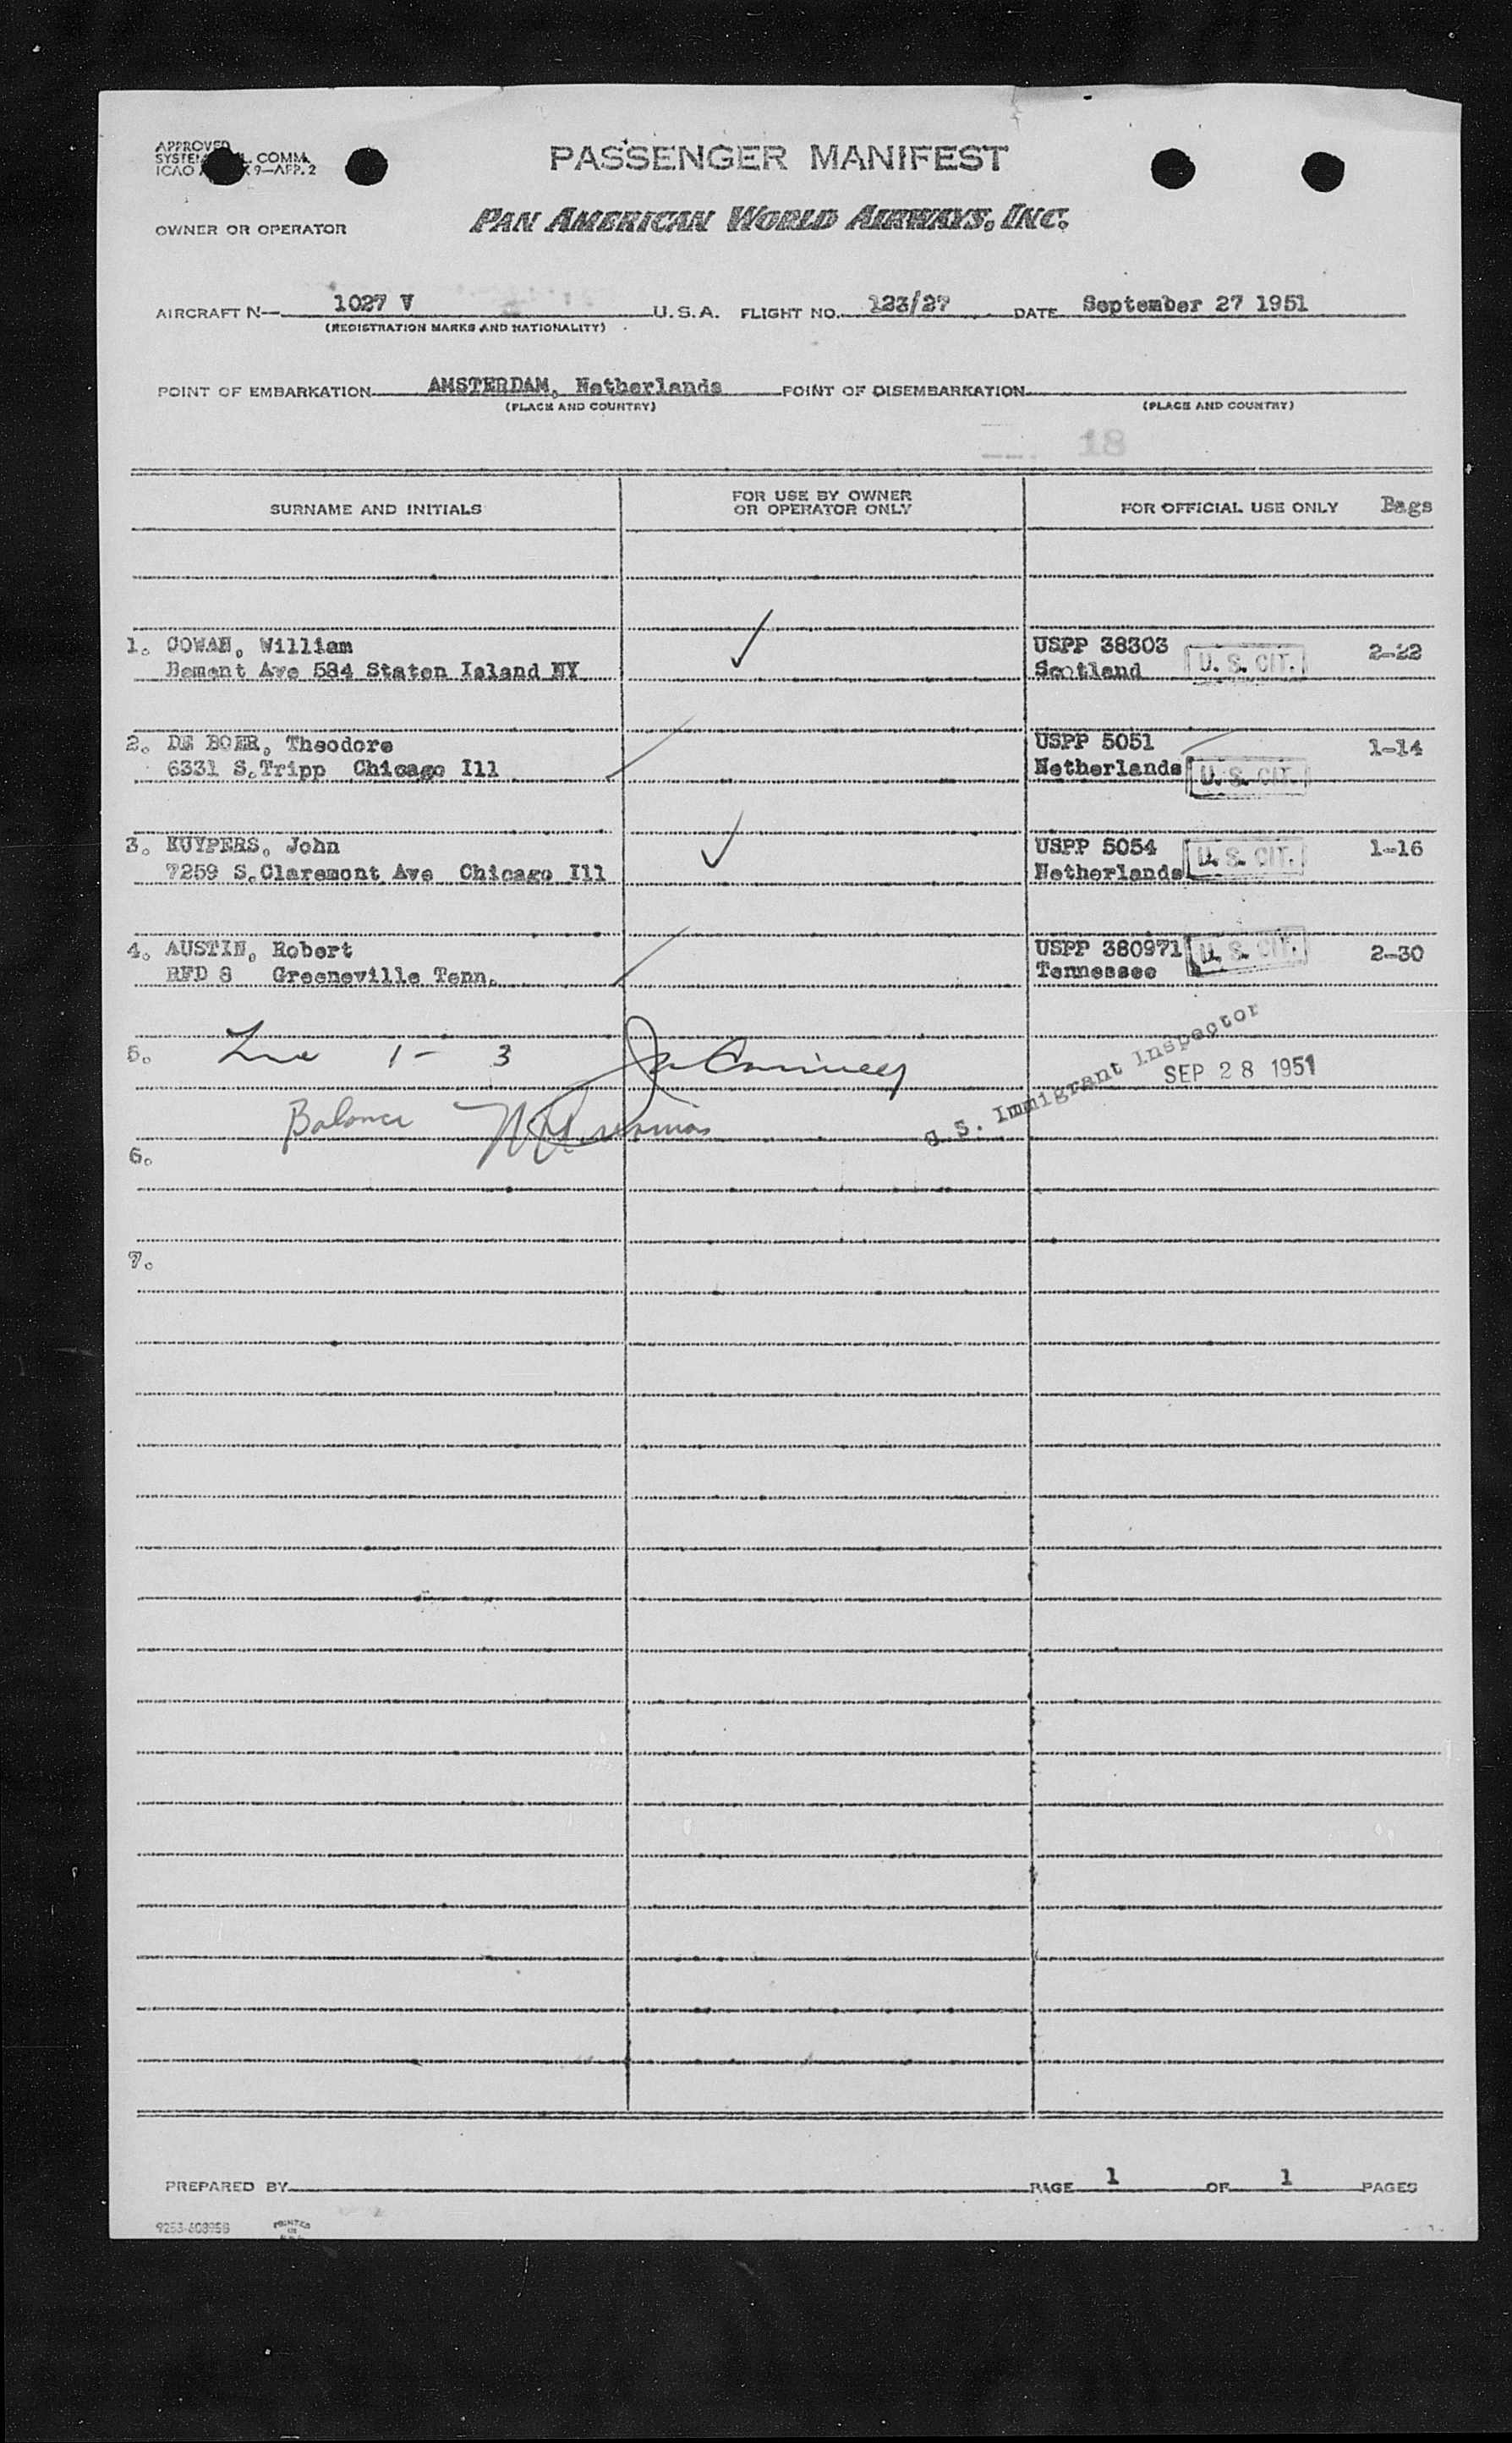 PASSENGER MANIFEST
OWNER OR OPERATOR PAN AMERICAN WORLD AIRWAYS, INC.
AIRCRAFT N— 1027 V U.S.A. FLIGHT NO. 123/27 DATE September 27 1951
(REGISTRATION MARKS AND NATIONALITY)
POINT OF EMBARKATION AMSTERDAM, Netherlands POINT OF DISEMBARKATION
(PLACE AND COUNTRY) (PLACE AND COUNTRY)
18
SURNAME AND INITIALS FOR USE BY OWNER OR OPERATOR ONLY FOR OFFICIAL USE ONLY Bags
1. COWAN, William USPP 38303 U. S. CIT. 2-22
Bement Ave 584 Staten Island NY Scotland
2. DE BOER, Theodore USPP 5051 1-14
6331 S.Tripp Chicago Ill Netherlands U. S. CIT.
3. KUYPERS, John USPP 5054 U. S. CIT. 1-16
7259 S.Claremont Ave Chicago Ill Netherlands
4. AUSTIN, Robert USPP 380971 U. S. CIT. 2-30
RFD 8 Greeneville Tenn. Tennessee
5. 1 - 3
U. S. Immigrant Inspector
SEP 28 1951
Balance
6.
7.
PREPARED BY PAGE 1 OF 1 PAGES